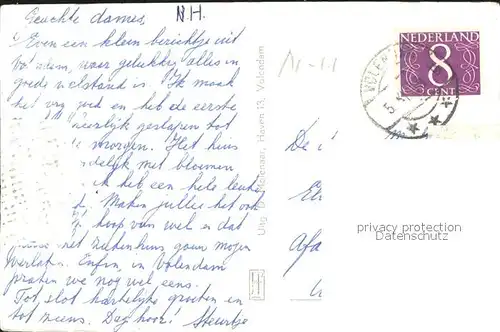 Geachte dames, N.H.
Even een klein berichtje uit
Volendam, waar gelukkig alles in
goede welstand is. Ik maak
het erg goed en heb de eerste
heerlijk geslapen tot
morgen. Het huis
met bloemen
ik heb een hele leuke
Maken jullie het ook
hoop van wel en dat
het ziekenhuis gauw mogen
verlaten. Enfin, in Volendam
praten we nog wel eens.
Tot slot hartelijke groeten en
tot ziens. Dag hoor!
Uitg. Molenaar, Haven 13, Volendam
NEDERLAND
8
CENT
VOLEN
De
El
Afa
privacy protection
Datenschutz